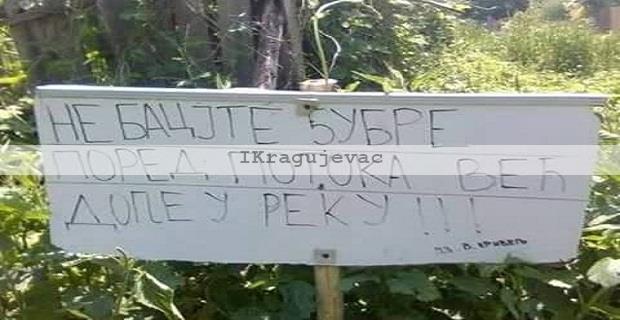 НЕ БАЦЈТЕ ЂУБРЕ
IKragujevac
ПОРЕД ПОТОКА ВЕЋ
ДОЛЕ У РЕКУ !!!